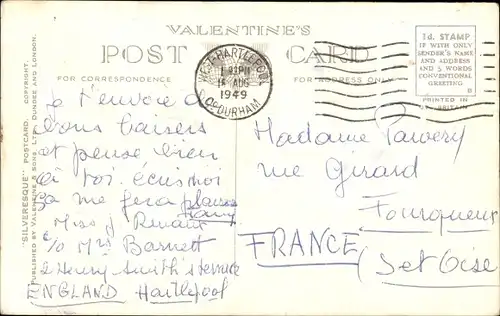 VALENTINE'S
POST CARD
FOR CORRESPONDENCE
FOR ADDRESS ONLY
WEST HARTLEPOOL
AUG
1949
CO. DURHAM
1d. STAMP
IF WITH ONLY
SENDER'S NAME
AND ADDRESS
AND 5 WORDS
CONVENTIONAL
GREETING
PRINTED IN
BRITAIN
"SILVERESQUE" POSTCARD. COPYRIGHT.
PUBLISHED BY VALENTINE & SONS LTD., DUNDEE AND LONDON.
Je t'envoie de
bons baisers
et pense bien
à toi. écris moi
ça me fera plaisir
Miss J Renault
c/o Mrs Barnett
2 Henry Smith's terrace
ENGLAND Hartlepool
Madame
rue Girard
Fourqueux
FRANCE (Set Oise)